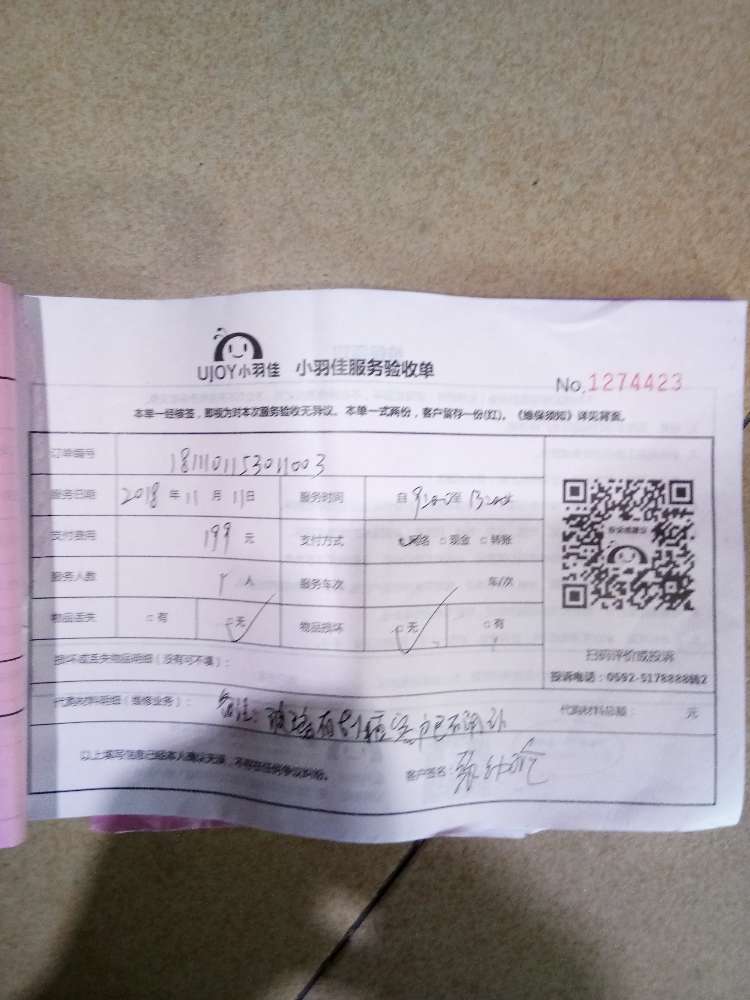 UJOY小羽佳 小羽佳服务验收单
No.1274423
本单一经签签，即视为对本次服务验收无异议。本单一式两份，客户留存一份(红)。《维保须知》详见背面。
订单编号 1811101153011003
服务日期 2018年11月11日 服务时间 自9:00至13:00
支付费用 199元 支付方式 网络 □现金 □转账
服务人数 1人 服务车次 车/次
物品丢失 □有 □无 物品损坏 □无 □有
扫码评价或投诉
损坏或丢失物品明细（没有可不填）：
投诉电话：0592-5178888转2
代购材料明细（维修业务）： 备注：玻璃有划痕客户已 代购材料总额： 元
以上填写信息已经本人确认无误，不存在任何争议纠纷。 客户签名：